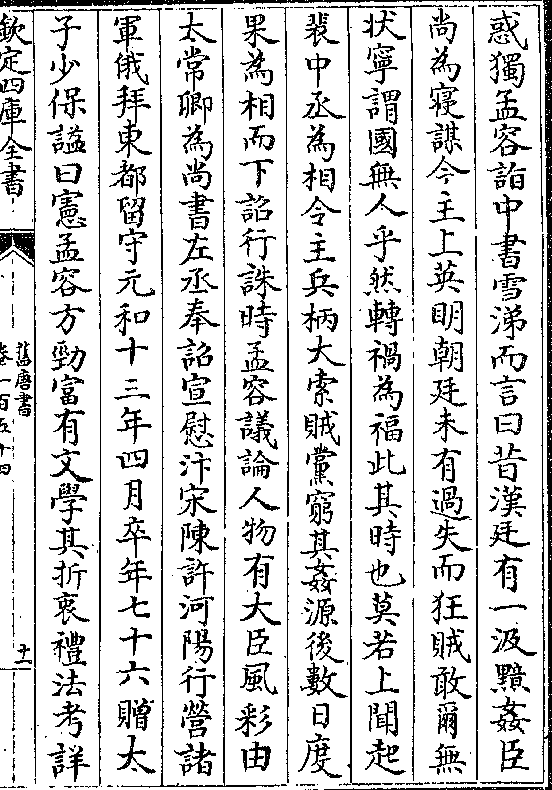 惑獨孟容詣中書雪涕而言曰昔漢廷有一汲黯姦臣
尚為寢謀今主上英明朝廷未有過失而狂賊敢爾無
狀寧謂國無人乎然轉禍為福此其時也莫若上聞起
裴中丞為相令主兵柄大索賊黨窮其姦源後數日度
果為相而下詔行誅時孟容議論人物有大臣風彩由
太常卿為尚書左丞奉詔宣慰汴宋陳許河陽行營諸
軍俄拜東都留守元和十三年四月卒年七十六贈太
子少保諡曰憲孟容方勁富有文學其折衷禮法考詳
欽定四庫全書
舊唐書
卷一百五十四
十一